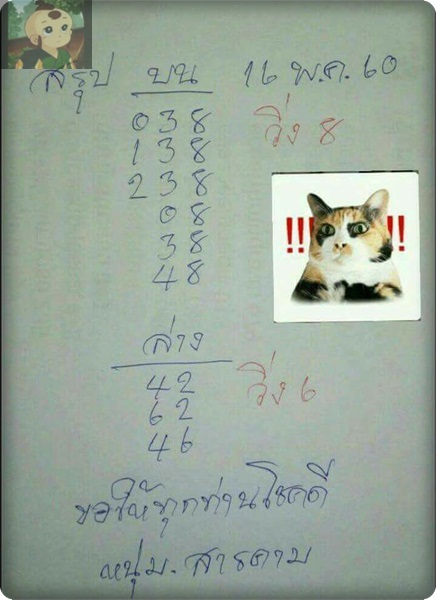 สรุป บน 16 พ.ค. 60
038 วิ่ง 8
138
238
08
38
48
!!! !!
ล่าง
42 วิ่ง 6
62
46
ขอให้ทุกท่านโชคดี
หนุ่ม. สารคาม